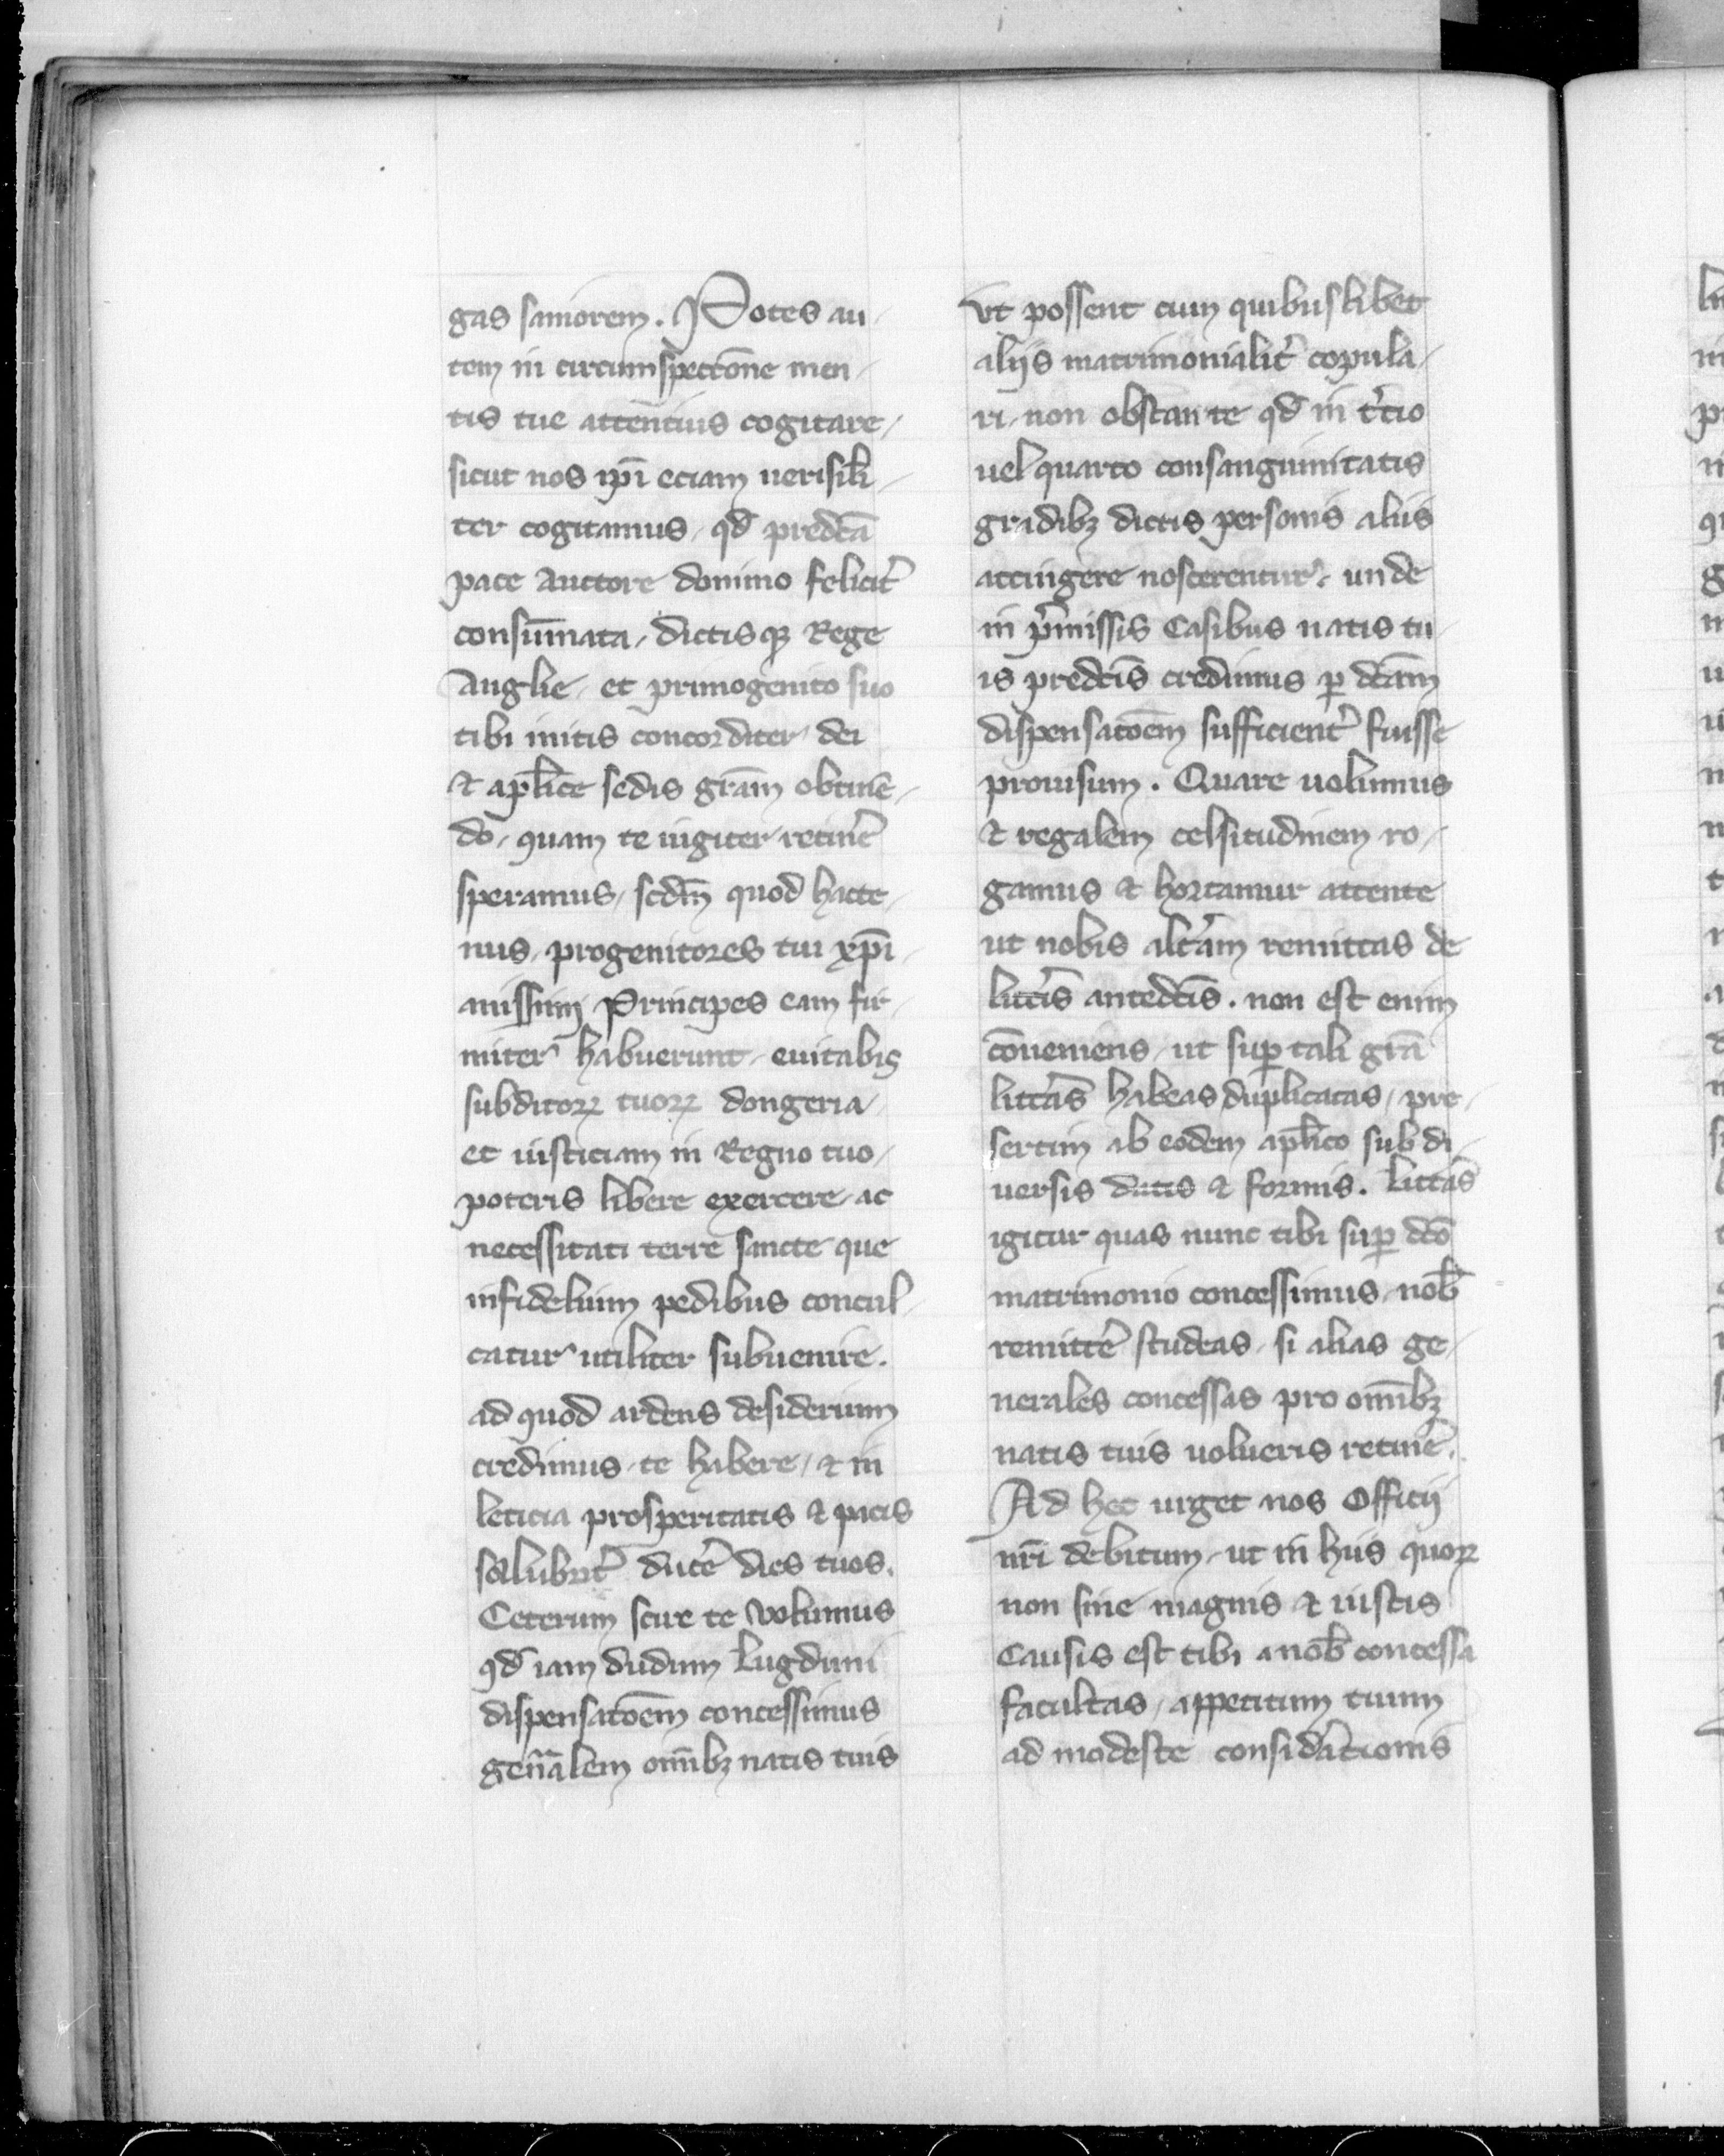 gas saniorem. Potes au-
tem in circumspectōne men-
tis tue attencius cogitare,
sicut nos ip̄i eciam uerisilī-
ter cogitamus, qd̄ predc̄ā
pace Auctore domino felicit̾
consum̄ata, dictisqꝫ Rege
Anglie, et primogenito suo
tibi initis concorditer, dei
⁊ aplīce sedis grām̄ obtinē-
do, quam te iugiter retinē̾
speramus, scdm̄ quod hacte-
nus progenitores tui xp̄i-
anissimi Principes eam fir-
miter habuerunt, euitabis
subditoꝝ tuoꝝ dongeria,
et iusticiam in Regno tuo,
poteris libere exercere, ac
necessitati terre sancte que
infidelium pedibus concul-
catur utiliter subuenire.
ad quod ardens desiderium
credimus te habere, ⁊ in
leticia prosperitatis ⁊ pacis
salubrit̾ ducē̾ dies tuos.
Ceterum scire te volumus
qd̄ iam dudum Lugduni
dispensatōēm concessimus
gen̄alem om̄ibꝫ natis tuis
vt possent cum quibuslibet
alijs matrimonialit̾ copula-
ri, non obstante qd̄ in t̾cio
uel quarto consanguinitatis
gradibꝫ dictis personis aliis
attingere noscerentur, unde
in p̾missis Casibus natis tu-
is predc̄is credimus ꝑ dc̄am
dispensatōēm sufficient̾ fuisse
prouisum. Quare uolumus
⁊ regalem celsitudinem ro-
gamus ⁊ hortamur attente
ut nobis alt̾am remittas de
litt̾is antedc̄is. non est enim
cōueniens, ut suꝑ tali grā
litt̾as habeas duplicatas, pre-
sertim ab eodem aplīco sub di-
uersis datis ⁊ formis. Litt̾as
igitur quas nunc tibi suꝑ dc̄o
matrimonio concessimus, nob̄
remittē̾ studeas, si alias ge-
nerales concessas pro om̄ibꝫ
natis tuis uolueris retinē̾.
Ad hec urget nos Officij
nr̄i debitum, ut in hiis quoꝝ
non sine magnis ⁊ iustis
Causis est tibi a nob̄ concessa
facultas, appetitum tuum
ad modeste consid̾ationis